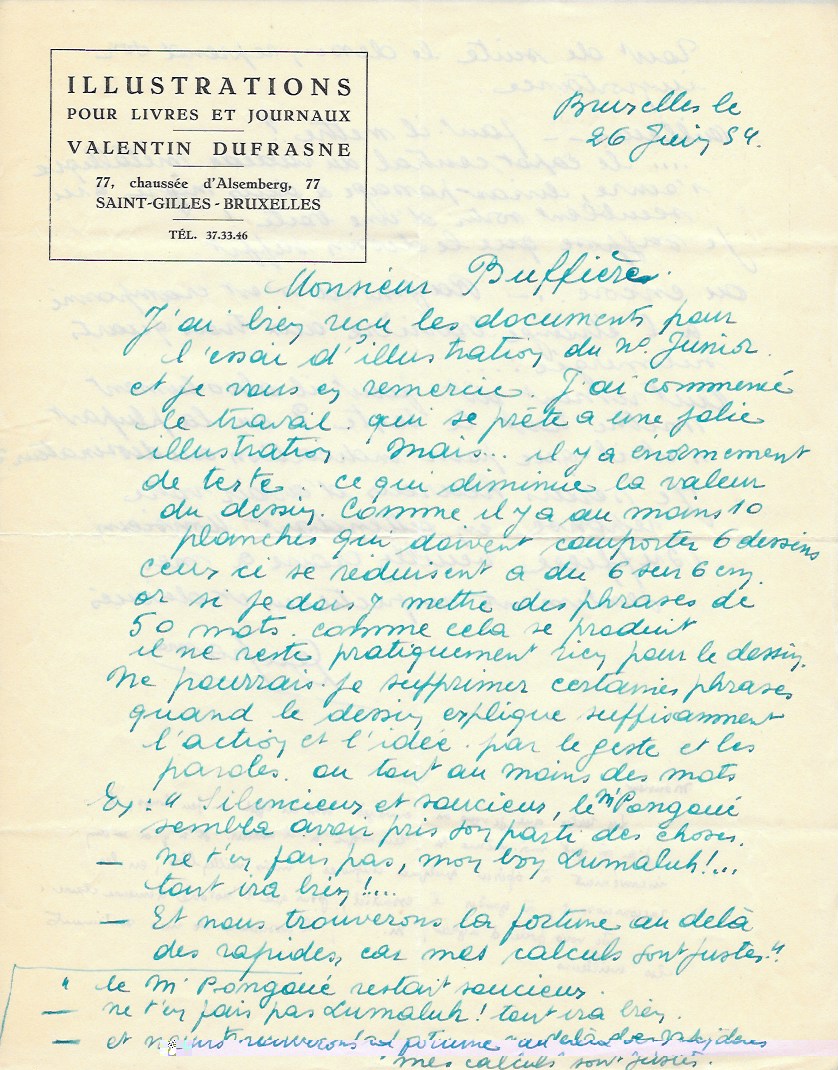 ILLUSTRATIONS
POUR LIVRES ET JOURNAUX
VALENTIN DUFRASNE
77, chaussée d'Alsemberg, 77
SAINT-GILLES - BRUXELLES
TÉL. 37.33.46
Bruxelles le
26 Juin 54.
Monsieur Buffière.
J'ai bien reçu les documents pour
l'essai d'illustration du no. Junior.
et je vous en remercie. J'ai commencé
le travail. qui se prête a une jolie
illustration. Mais.. il y a enormement
de texte. ce qui diminue la valeur
du dessin. Comme il y a au moins 10
planches qui doivent comporter 6 dessins
ceux ci se réduisent a du 6 sur 6 cm.
or si je dois y mettre des phrases de
50 mots. comme cela se produit
il ne reste pratiquement rien pour le dessin.
Ne pourrais-je supprimer certaines phrases
quand le dessin explique suffisamment
l'action et l'idée. par le geste et les
paroles. ou tout au moins des mots
Ex: "Silencieux et soucieux, le Mr Pongoué
sembla avoir pris son parti des choses.
— ne t'en fais pas, mon boy Lumaluk!...
tout ira bien!...
— Et nous trouverons la fortune au delà
des rapides, car mes calculs sont justes."
" le Mr Pongoué restait soucieux.
— ne t'en fais pas Lumaluk! tout ira bien.
— et nous trouverons la fortune au delà des rapides
"mes calculs" sont justes.